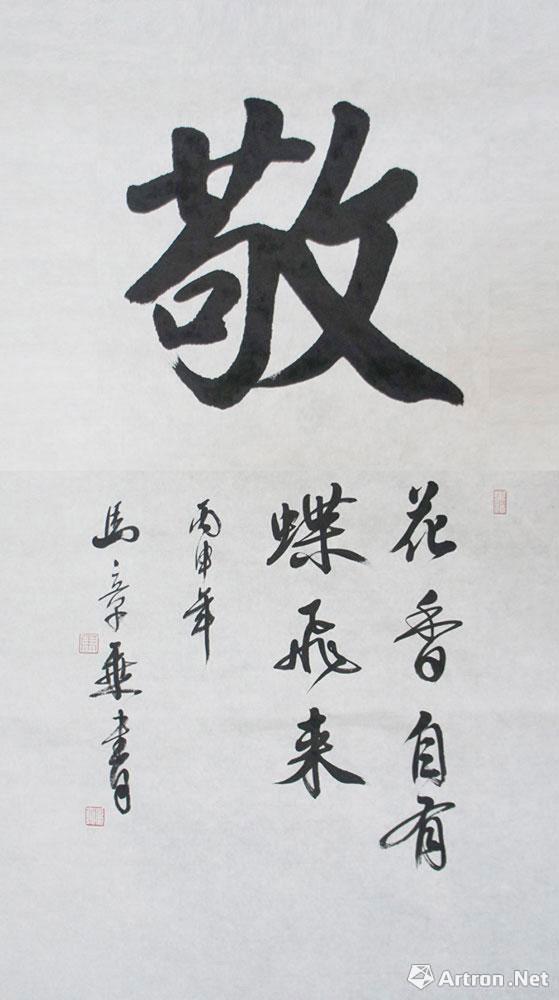 敬
花香自有
蝶飛来
丙申年
馬章乘書
Artron.Net